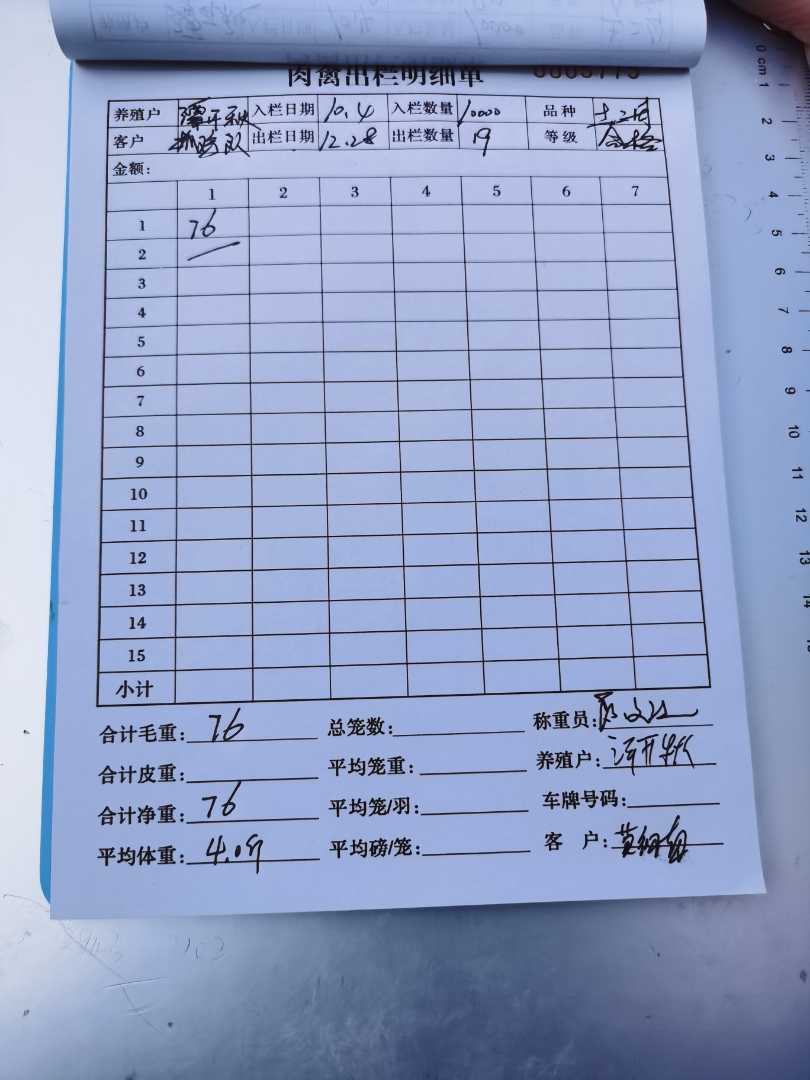 肉禽出栏明细单
养殖户 入栏日期 10.4 入栏数量 10000 品种
客户 抓鸡队 出栏日期 12.28 出栏数量 19 等级 合格
金额:
1 2 3 4 5 6 7
1 76
2
3
4
5
6
7
8
9
10
11
12
13
14
15
小计
合计毛重: 76 总笼数: 称重员:
合计皮重: 平均笼重: 养殖户:
合计净重: 76 平均笼/羽: 车牌号码:
平均体重: 4.0斤 平均磅/笼: 客户:
0 cm 1
2
3
4
5
6
7
8
9
10
11
12
13
14